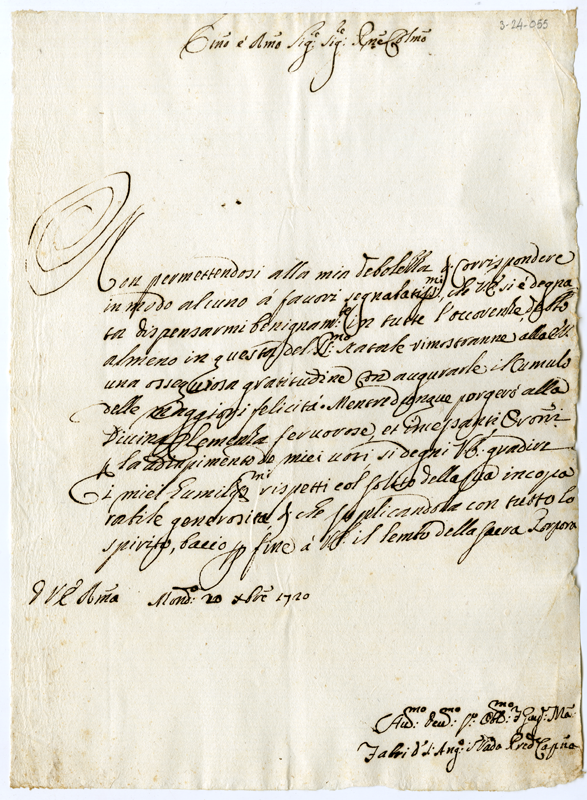 3-24-055
Em̃o é Rm̃o Sig.r Sig.r Prñe Colmõ
Non permettendosi alla mia debolezza di Corrispondere
in modo alcuno á favori segnalatissmi, che VE. si è degna
ta dispensarmi benignam.te in tutte l'occorenze
almeno in questa del S.mo Natale rimostranne alla
una ossequiosa gratitudine con augurarle il Cumulo
delle maggiori felicità. Mentre dunque porgerò alla
Divina Clemenza fervorose, et incessanti
p la adimpimento de miei voti si degni VE. gradire
i miei humilis.mi rispetti col solito della sua incopa
rabile generosità, che suplicandola con tutto lo
spirito, bacio p fine á VE. il lembo della sacra Porpora
D VE Rm̃a Mond: 20 Xbrẽ 1720
Hu.mo Deu.mo Obb.mo
Fabri